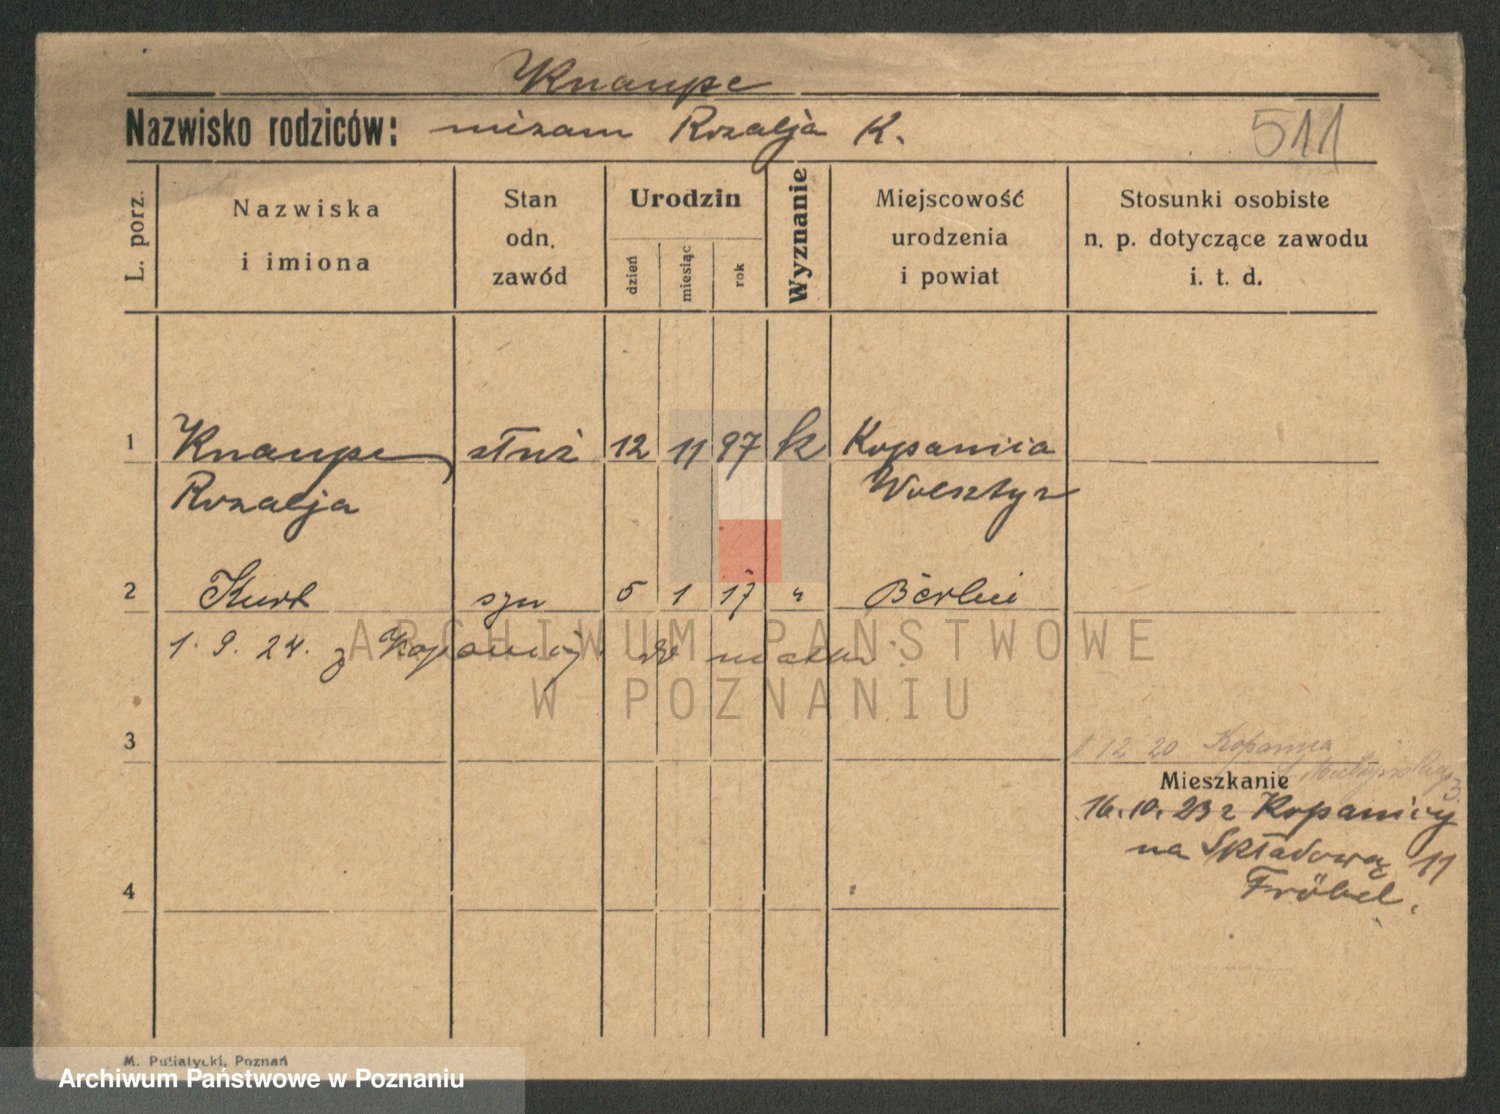 Knaupe
Nazwisko rodziców: niezam Rozalja K.
511
L. porz.
Nazwiska
i imiona
Stan
odn.
zawód
Urodzin
dzień
miesiąc
rok
Wyznanie
Miejscowość
urodzenia
i powiat
Stosunki osobiste
n. p. dotyczące zawodu
i. t. d.
1 Knaupe służ 12 11 97 k Kopanica
Rozalja Wolsztyn
2 Kurt syn 5 1 17 " Berlin
1. 9. 24. z Kopanicy do matki.
ARCHIWUM PAŃSTWOWE
W POZNANIU
3
12 20 Kopanica
Mieszkanie
16. 10. 23 z Kopanicy
na Składową 11
Fröbel.
4
M. Putiatycki, Poznań
Archiwum Państwowe w Poznaniu